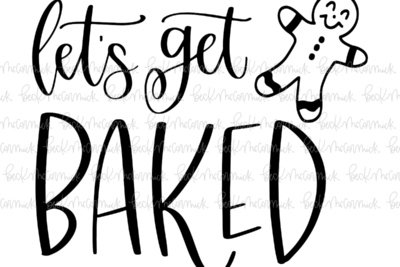 let's get
BAKED